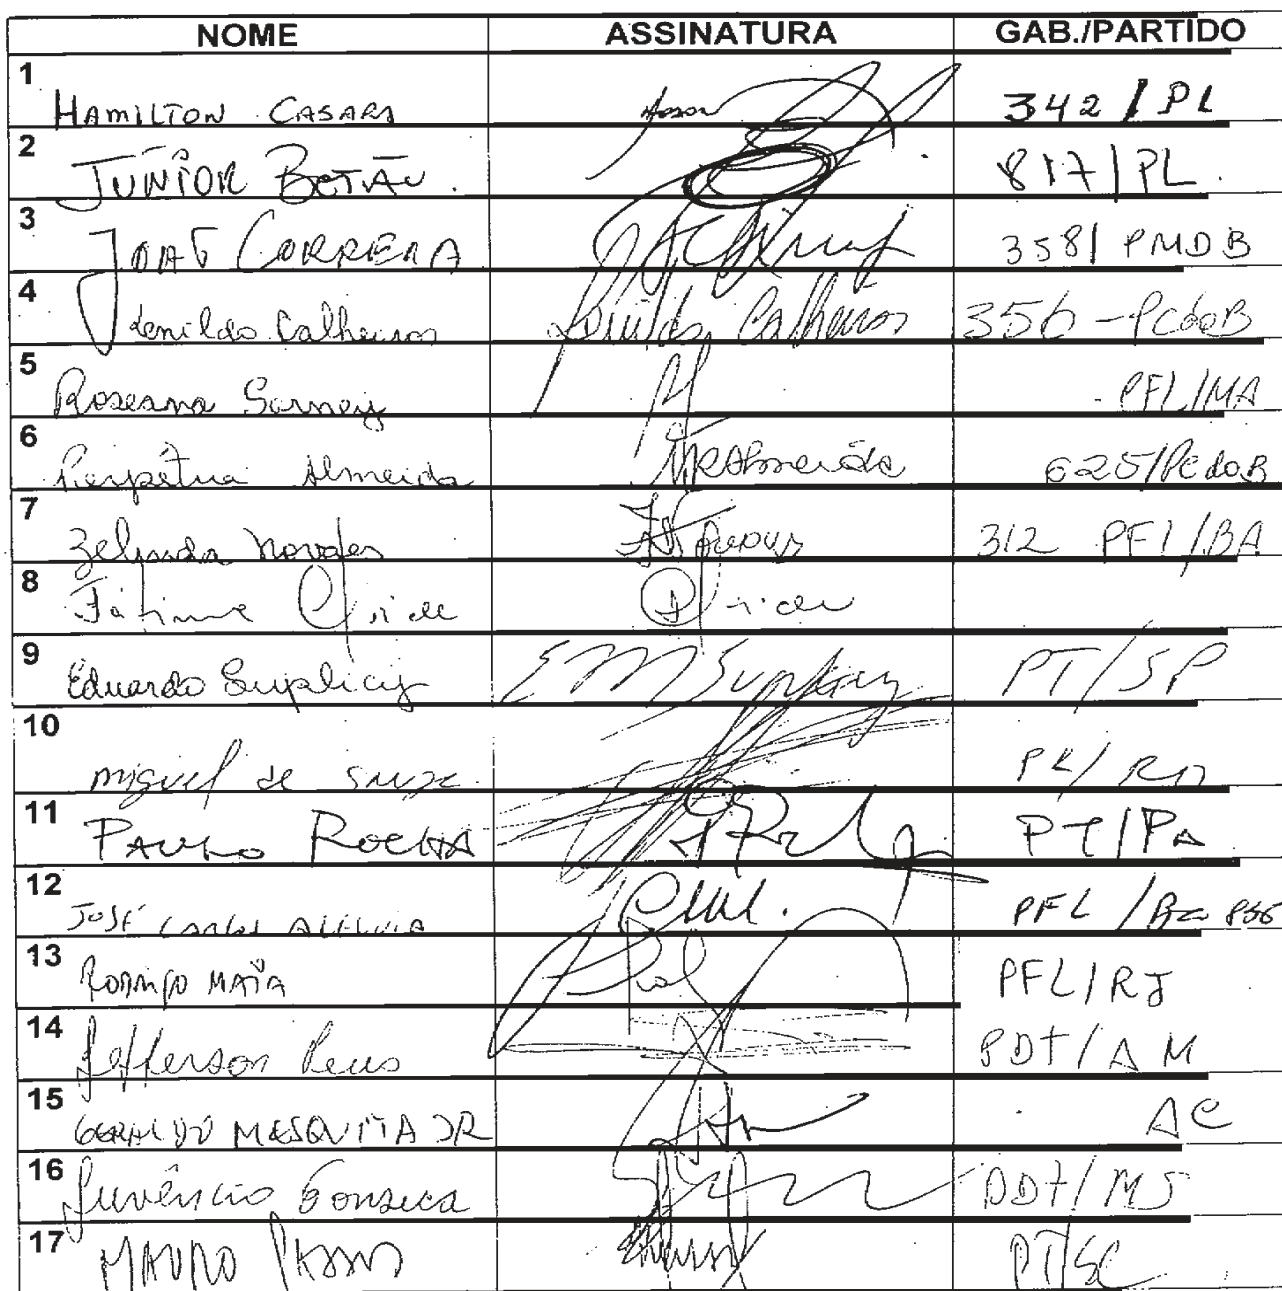 NOME ASSINATURA GAB./PARTIDO
1 HAMILTON CASARA 342 / PL
2 JÚNIOR BETÃO. 817 / PL.
3 CORREIA 358 / PMDB
4 Renildo Calheiros Renildo Calheiros 356 - PCdoB
5 Roseana Sarney PFL/MA
6 Perpétua Almeida Almeida 625/PCdoB
7 Zelinda Novaes Novaes 312 PFL/BA
8 Fátima
9 Eduardo Suplicy EMSuplicy PT/SP
10 Miguel de Souza PL/RO
11 PAULO ROCHA PT/PA
12 JOSÉ CARLOS ALELUIA PFL/Ba 856
13 RODRIGO MAIA PFL/RJ
14 Jefferson Peres PDT/AM
15 GERALDO MESQUITA JR AC
16 Juvêncio Fonseca PDT/MS
17 MAURO PASSOS PT/SC